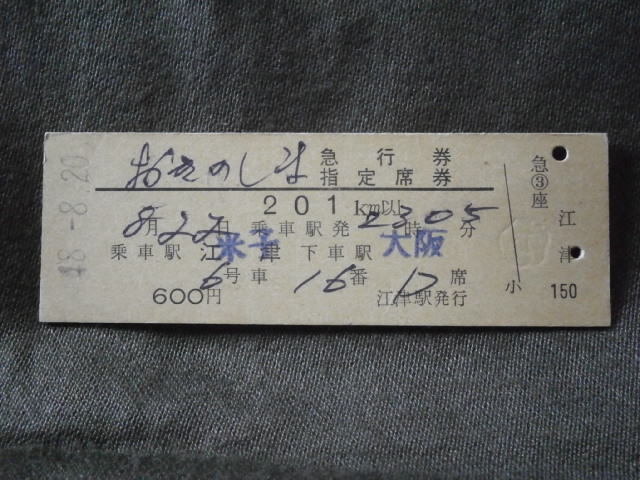 48.-8.20
おきのしま 急行券
指定席券
201km以上
8月22日 乗車駅発 23時05分
乗車駅 江津 米子 下車駅 大阪
6号車 16番 D席
600円 江津駅発行
急③座
小
江津
150